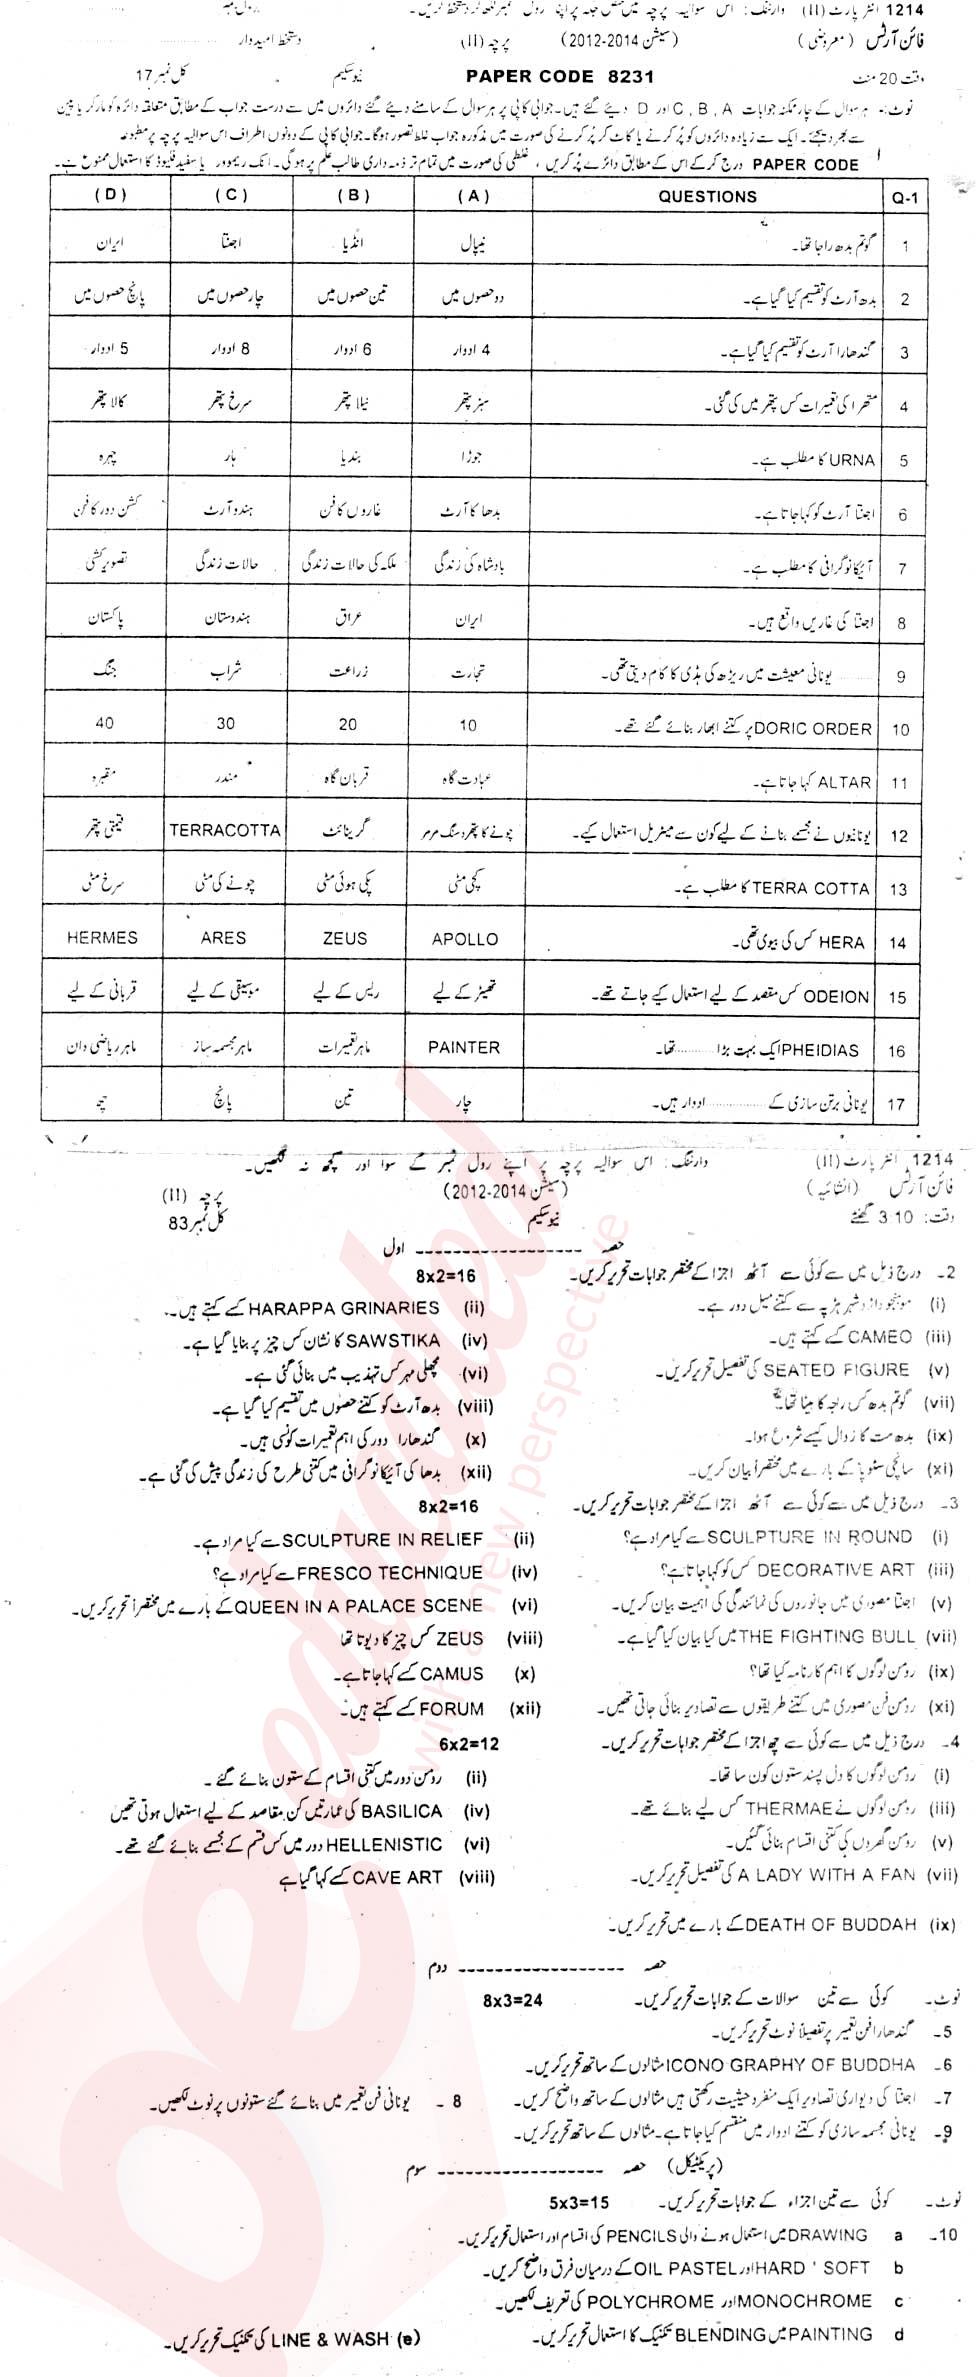 1214 انٹر پارٹ (II) وارننگ: اس سوالیہ پرچہ میں مختص جگہ پر اپنا رول نمبر لکھ کر دستخط کریں۔ رول نمبر
فائن آرٹس (معروضی) (سیشن 2014-2012) پرچہ (II) دستخط امیدوار
وقت 20 منٹ PAPER CODE 8231 نیو سکیم کل نمبر 17
نوٹ:۔ ہر سوال کے چار ممکنہ جوابات A , B , C اور D دیئے گئے ہیں۔ جوابی کاپی پر ہر سوال کے سامنے دیئے گئے دائروں میں سے درست جواب کے مطابق متعلقہ دائرہ کو مارکر یا پین
سے بھر دیجئے۔ ایک سے زیادہ دائروں کو پُر کرنے یا کاٹ کر پُر کرنے کی صورت میں مذکورہ جواب غلط تصور ہوگا۔ جوابی کاپی کے دونوں اطراف اس سوالیہ پرچہ پر مطبوعہ
PAPER CODE درج کر کے اس کے مطابق دائرے پُر کریں، غلطی کی صورت میں تمام تر ذمہ داری طالب علم پر ہوگی۔ انک ریموور یا سفید فلیوڈ کا استعمال ممنوع ہے۔
Q-1 QUESTIONS (A) (B) (C) (D)
1 گوتم بدھ راجا تھا۔ نیپال انڈیا اجنتا ایران
2 بدھ آرٹ کو تقسیم کیا گیا ہے۔ دو حصوں میں تین حصوں میں چار حصوں میں پانچ حصوں میں
3 گندھارا آرٹ کو تقسیم کیا گیا ہے۔ 4 ادوار 6 ادوار 8 ادوار 5 ادوار
4 متھرا کی تعمیرات کس پتھر میں کی گئی۔ سبز پتھر نیلا پتھر سرخ پتھر کالا پتھر
5 URNA کا مطلب ہے۔ جوڑا بندیا ہار چہرہ
6 اجنتا آرٹ کو کہا جاتا ہے۔ بدھا کا آرٹ غاروں کا فن ہندو آرٹ کشن دور کا فن
7 آئیکانوگرافی کا مطلب ہے۔ بادشاہ کی زندگی ملکہ کی حالات زندگی حالات زندگی تصویر کشی
8 اجنتا کی غاریں واقع ہیں۔ ایران عراق ہندوستان پاکستان
9 ............ یونانی معیشت میں ریڑھ کی ہڈی کا کام دیتی تھی۔ تجارت زراعت شراب جنگ
10 DORIC ORDER پر کتنے ابھار بنائے گئے تھے۔ 10 20 30 40
11 ALTAR کہا جاتا ہے۔ عبادت گاہ قربان گاہ مندر مقبرہ
12 یونانیوں نے مجسمے بنانے کے لیے کون سے میٹریل استعمال کیے۔ چونے کا پتھر و سنگ مرمر گرینائٹ TERRACOTTA قیمتی پتھر
13 TERRA COTTA کا مطلب ہے۔ کچی مٹی پکی ہوئی مٹی چونے کی مٹی سرخ مٹی
14 HERA کس کی بیوی تھی۔ APOLLO ZEUS ARES HERMES
15 ODEION کس مقصد کے لیے استعمال کیے جاتے تھے۔ تھیٹر کے لیے ریس کے لیے موسیقی کے لیے قربانی کے لیے
16 PHEIDIAS ایک بہت بڑا ........... تھا۔ PAINTER ماہر تعمیرات ماہر مجسمہ ساز ماہر ریاضی دان
17 یونانی برتن سازی کے ............... ادوار ہیں۔ چار تین پانچ چھ
1214 انٹر پارٹ (II) وارننگ: اس سوالیہ پرچہ پر اپنے رول نمبر کے سوا اور کچھ نہ لکھیں۔
فائن آرٹس (انشائیہ) (سیشن 2014-2012) پرچہ (II)
وقت: 3:10 گھنٹے نیو سکیم کل نمبر 83
حصہ ------------------ اول
2۔ درج ذیل میں سے کوئی سے آٹھ اجزا کے مختصر جوابات تحریر کریں۔ 8x2=16
(i) موہنجوداڑو شہر ہڑپہ سے کتنے میل دور ہے۔ (ii) HARAPPA GRINARIES کسے کہتے ہیں۔
(iii) CAMEO کسے کہتے ہیں۔ (iv) SAWSTIKA کا نشان کس چیز پر بنایا گیا ہے۔
(v) SEATED FIGURE کی تفصیل تحریر کریں۔ (vi) مچھلی مہر کس تہذیب میں بنائی گئی ہے۔
(vii) گوتم بدھ کس راجہ کا بیٹا تھا؟ (viii) بدھ آرٹ کو کتنے حصوں میں تقسیم کیا گیا ہے۔
(ix) بدھ مت کا زوال کیسے شروع ہوا۔ (x) گندھارا دور کی اہم تعمیرات کونسی ہیں۔
(xi) سانچی سٹوپا کے بارے میں مختصراً بیان کریں۔ (xii) بدھا کی آئیکانوگرافی میں کتنی طرح کی زندگی پیش کی گئی ہے۔
3۔ درج ذیل میں سے کوئی سے آٹھ اجزا کے مختصر جوابات تحریر کریں۔ 8x2=16
(i) SCULPTURE IN ROUND سے کیا مراد ہے؟ (ii) SCULPTURE IN RELIEF سے کیا مراد ہے۔
(iii) DECORATIVE ART کس کو کہا جاتا ہے؟ (iv) FRESCO TECHNIQUE سے کیا مراد ہے؟
(v) اجنتا مصوری میں جانوروں کی نمائندگی کی اہمیت بیان کریں۔ (vi) QUEEN IN A PALACE SCENE کے بارے میں مختصراً تحریر کریں۔
(vii) THE FIGHTING BULL میں کیا بیان کیا گیا ہے۔ (viii) ZEUS کس چیز کا دیوتا تھا
(ix) رومن لوگوں کا اہم کارنامہ کیا تھا؟ (x) CAMUS کسے کہا جاتا ہے۔
(xi) رومن فن مصوری میں کتنے طریقوں سے تصاویر بنائی جاتی تھیں۔ (xii) FORUM کسے کہتے ہیں۔
4۔ درج ذیل میں سے کوئی سے چھ اجزا کے مختصر جوابات تحریر کریں۔ 6x2=12
(i) رومن لوگوں کا دل پسند ستون کون سا تھا۔ (ii) رومن دور میں کتنی اقسام کے ستون بنائے گئے۔
(iii) رومن لوگوں نے THERMAE کس لیے بنائے تھے۔ (iv) BASILICA کی عمارتیں کن مقاصد کے لیے استعمال ہوتی تھیں
(v) رومن گھروں کی کتنی اقسام بنائی گئیں۔ (vi) HELLENISTIC دور میں کس قسم کے مجسمے بنائے گئے تھے۔
(vii) A LADY WITH A FAN کی تفصیل تحریر کریں۔ (viii) CAVE ART کسے کہا گیا ہے
(ix) DEATH OF BUDDAH کے بارے میں تحریر کریں۔
حصہ ------------------ دوم
نوٹ۔ کوئی سے تین سوالات کے جوابات تحریر کریں۔ 8x3=24
5۔ گندھارا فن تعمیر پر تفصیلاً نوٹ تحریر کریں۔
6۔ ICONO GRAPHY OF BUDDHA مثالوں کے ساتھ تحریر کریں۔
7۔ اجنتا کی دیواری تصاویر ایک منفرد حیثیت رکھتی ہیں مثالوں کے ساتھ واضح کریں۔ 8۔ یونانی فن تعمیر میں بنائے گئے ستونوں پر نوٹ لکھیں۔
9۔ یونانی مجسمہ سازی کو کتنے ادوار میں منقسم کیا جاتا ہے۔ مثالوں کے ساتھ تحریر کریں۔
(پریکٹیکل) حصہ ------------------ سوم
نوٹ۔ کوئی سے تین اجزاء کے جوابات تحریر کریں۔ 5x3=15
10۔ a DRAWING میں استعمال ہونے والی PENCILS کی اقسام اور استعمال تحریر کریں۔
b HARD ' SOFT اور OIL PASTEL کے درمیان فرق واضح کریں۔
c MONOCHROME اور POLYCHROME کی تعریف لکھیں۔
d PAINTING میں BLENDING تکنیک کا استعمال تحریر کریں۔ (e) LINE & WASH کی تکنیک تحریر کریں۔
beeducated
with a new perspective